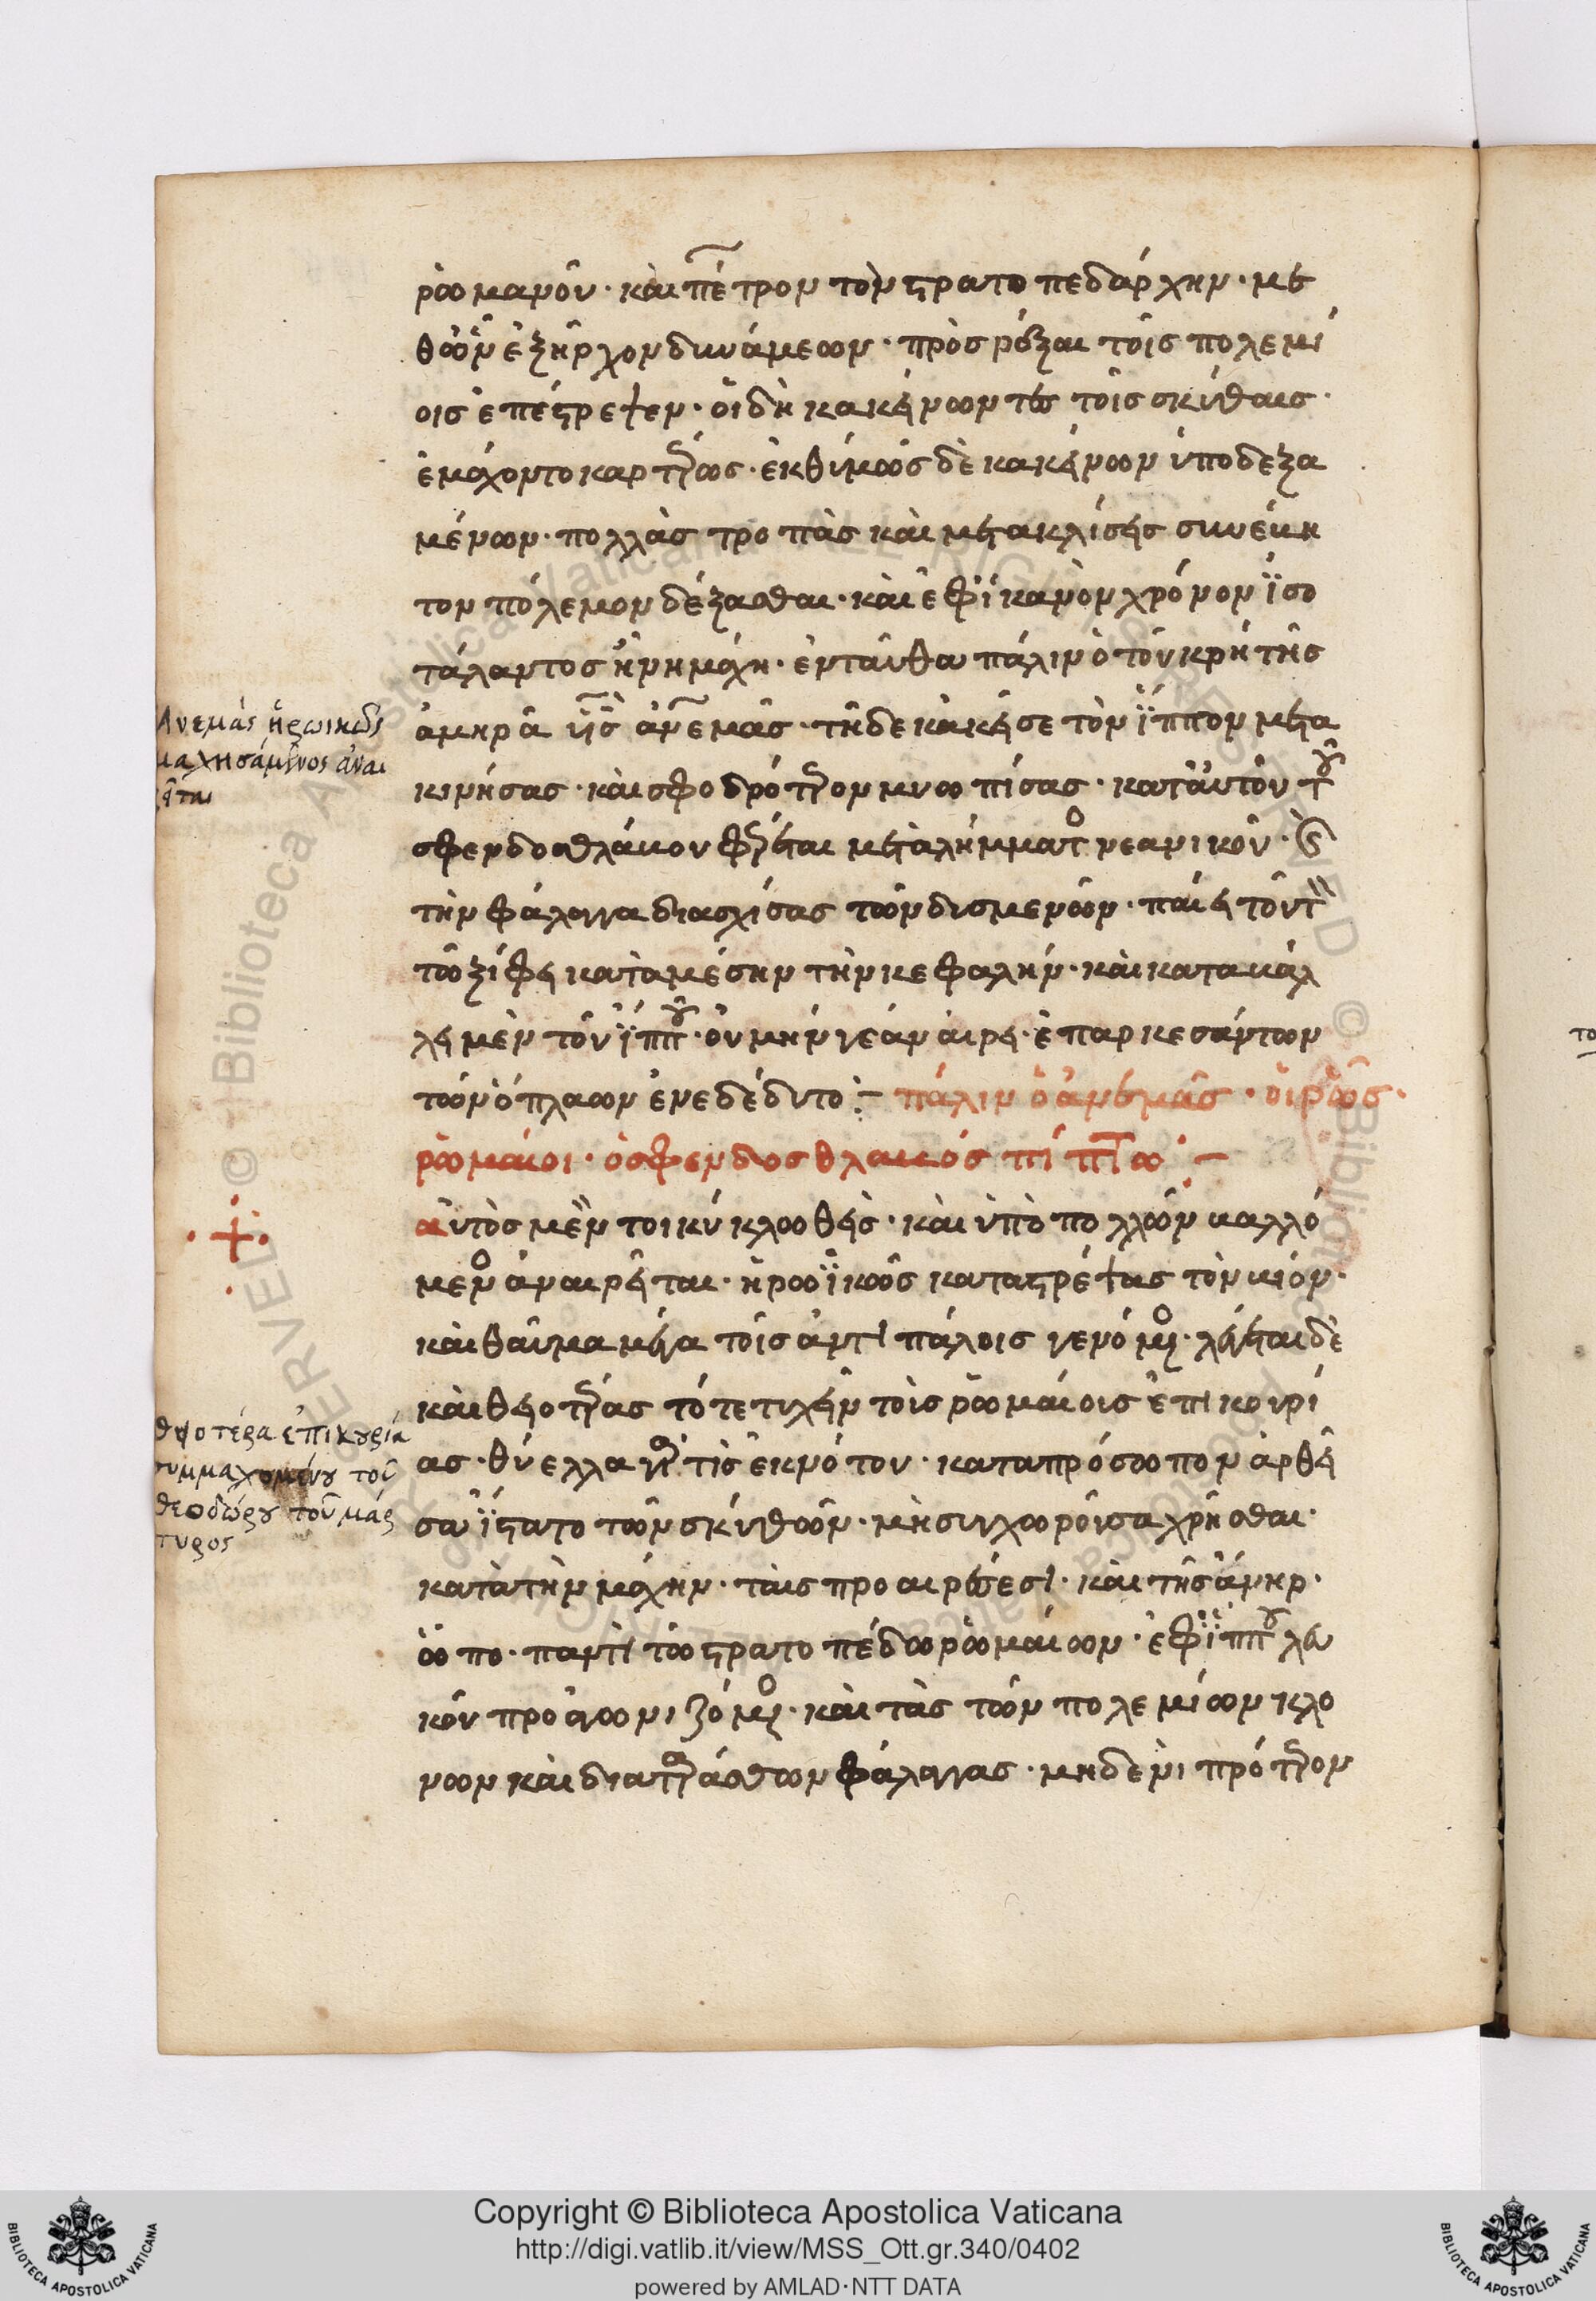 ῥωμανοῦ· καὶ πέτρον τὸν στρατοπεδάρχην· με
θ' ὧν ἐξῆρχον δυνάμεων· προσρῦξαι τοῖς πολεμί
οις ἐπέτρεψεν· οἱ δὴ κακείνων τὲ τοῖς σκύθαις·
ἐμάχοντο καρτερῶς· ἐκθύμως δὲ κακείνων ὑποδεξα
μένων· πολλὰς τροπὰς καὶ μετακλίσεις συνέβη
τὸν πόλεμον δέξασθαι· καὶ ἐφ' ἱκανὸν χρόνον ἰσο
τάλαντος ἦν ἡ μάχη· ἐνταῦθα πάλιν ὁ τοῦ κρήτης
ἀμηρᾶ υἱὸς ἀνεμᾶς· τῆδε κἀκεῖσε τὸν ἵππον μετα
κινήσας· καὶ σφοδρότερον μυωπίσας· κατ' αὐτοῦ τοῦ
σφενδοσθλάβου φέρεται μετὰ λήμματος νεανικοῦ· καὶ
τὴν φάλαγγα διασχίσας τῶν δυσμενῶν· παίει τοῦτον
τῶ ξίφει κατὰ μέσην τὴν κεφαλήν· καὶ καταβάλ
λει μὲν τοῦ ἵππου· οὐ μὴν γε ἀναιρεῖ· ἐπαρκεσάντων
τῶν ὅπλων ὧν ἐνεδέδυτο:– πάλιν ὁ ἀνεμᾶς· οἱ ρῶς·
ῥωμαίοι· ὁ σφενδοσθλαβός πίπτω :–
αὐτὸς μέντοι κύκλωθεὶς· καὶ ὑπὸ πολλῶν βαλλό
μενος ἀναιρεῖται· ἡρωϊκῶς καταστρέψας τὸν βίον·
καὶ θαῦμα μέγα τοῖς ἀντιπάλοις γενόμενος· λέγεται δὲ
καὶ θειοτέρας τότε τυχεῖν τοῖς ῥωμαίοις ἐπικουρί
ας· θύελλα γάρ τις ἐκ νότου· κατὰ πρόσωπον ἀρθεῖ
σα ἵστατο τῶν σκυθῶν· μὴ συγχωροῦσα χρῆσθαι·
κατὰ τὴν μάχην· ταῖς προαιρέσεσι· καὶ τὶς ἀνηρ·
ὦπο· παντὶ τῶ στρατοπέδω ῥωμαίων· ἐφ' ἵππου λευ
κοῦ προαγωνιζόμενος· καὶ τὰς τῶν πολεμίων κλο
νων καὶ διαταράσσων φάλαγγας· μηδενὶ πρότερον
Ἀνεμάς ἡρωικῶς
μαχησάμενος ἀναι
ρεῖται
θειοτέρα ἐπικουρία
συμμαχομένου τοῦ
θεοδώρου τοῦ μάρ
τυρος
Copyright © Biblioteca Apostolica Vaticana
http://digi.vatlib.it/view/MSS_Ott.gr.340/0402
powered by AMLAD·NTT DATA
BIBLIOTECA APOSTOLICA VATICANA
BIBLIOTECA APOSTOLICA VATICANA